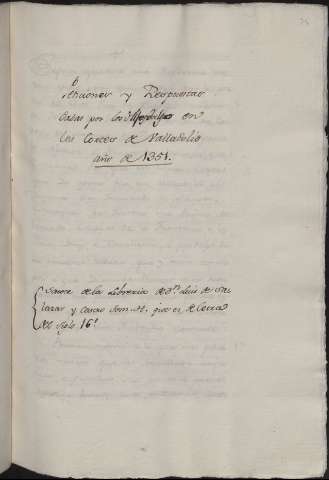 Peticiones y Respuestas
dadas por los en
las Cortes de Valladolid
año de 1351.
Sacose de la Libreria de Dn. Luis de Sa
lazar y Castro tom. que es de letra
del siglo 16.